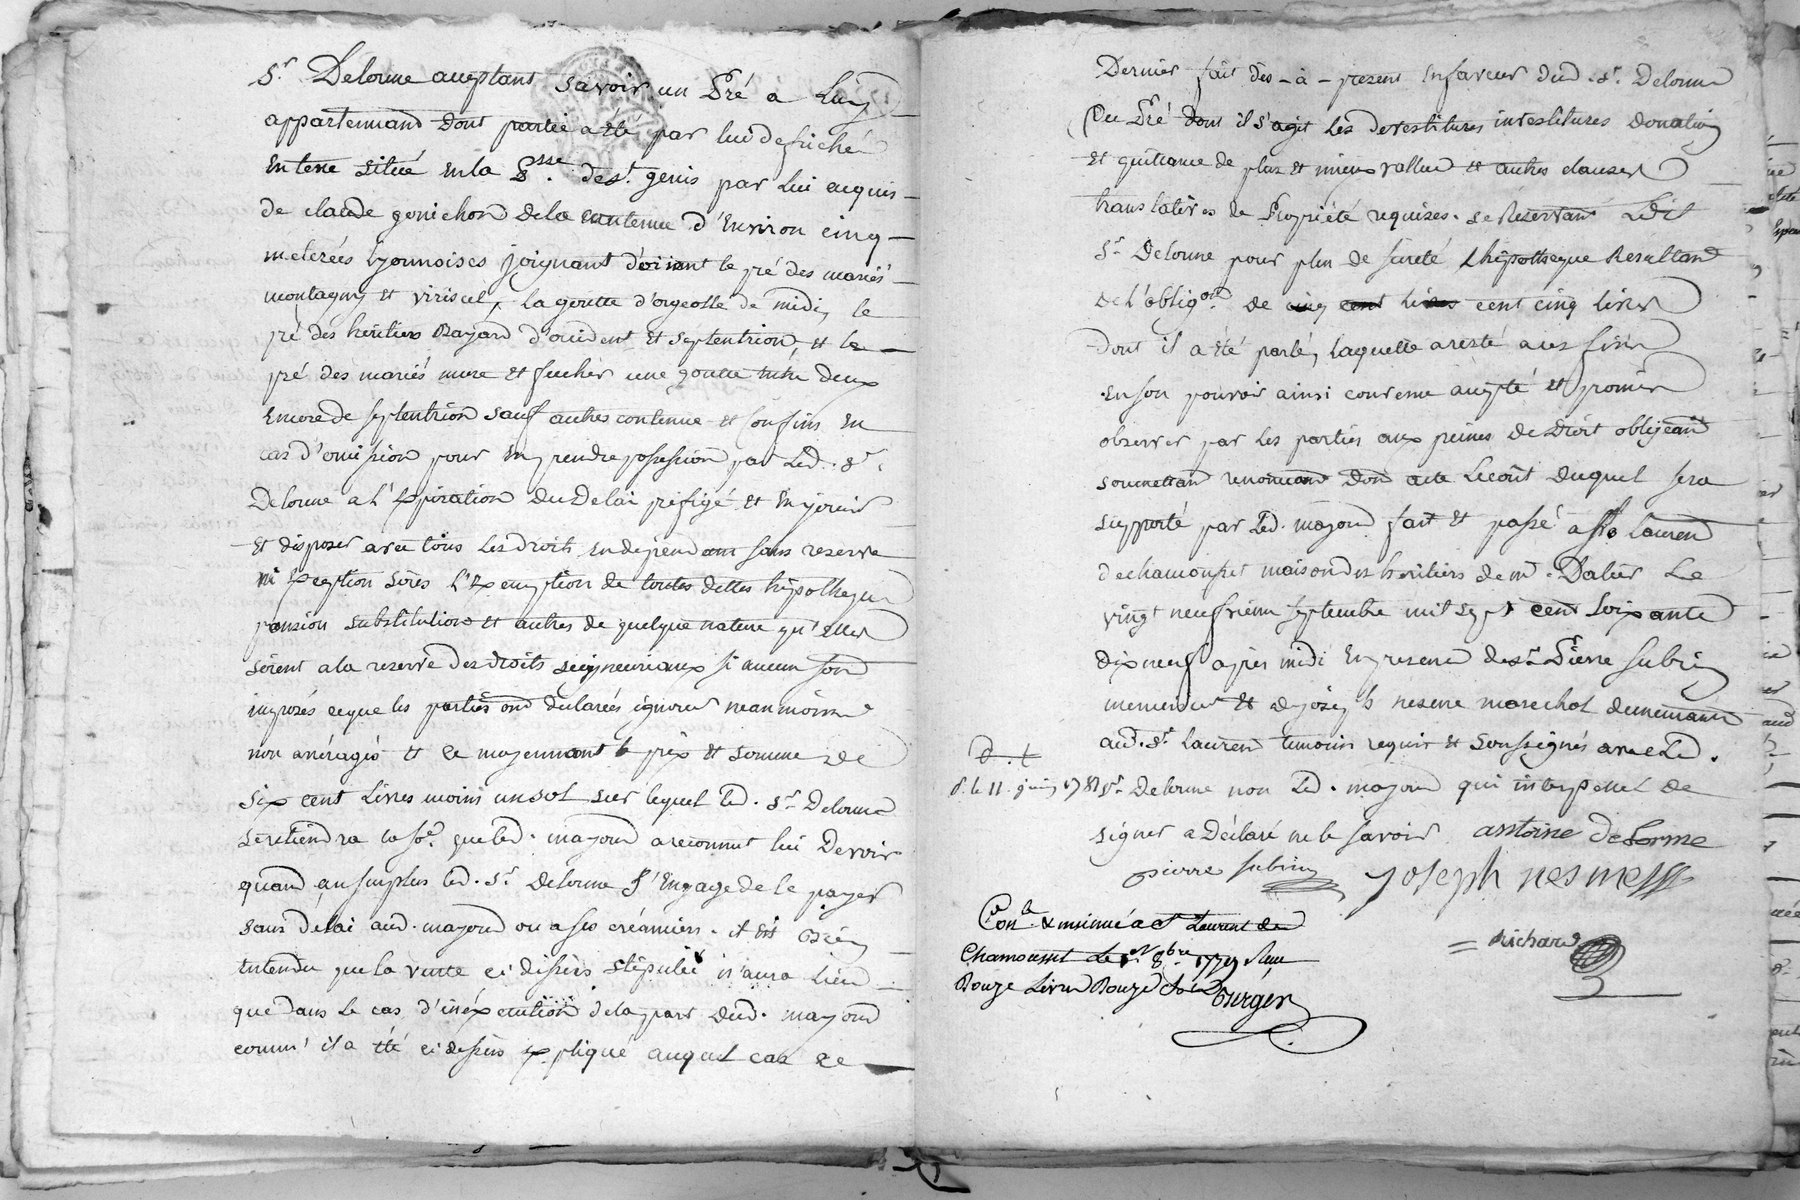 Sr. Delorme acceptant savoir un Pré a luy
appartenand dont partie a été par lui defriché
en terre situé en la Psse. de st. genis par lui acquis
de claude gonichon de la contenue d'environ cinq
meterées lyonnoises joignant d'orient le pré des mariés
montagny et viricel, la goutte d'orgeolle de midi, le
pré des heritiers Bajard d'occident et septentrion et le
pré des mariés mure et une goutte entre deux
encore de septentrion sauf autres contenue et confins en
cas d'omission pour en prendre possession par led. sr.
Delorme a l'expiration du delai préfigé et en jouir
et disposer avec tous les droits en dependant sans reserve
ni exception sous l'exemption de toutes dettes hipotheques
pension substitution et autres de quelque nature qu'elles
soient a la reserve des droits seigneuriaux si aucun sond
imposés ceque les parties ond declarées ignorer neanmoins
non arréragés et ce moyennant le prix et somme de
six cent livres moins un sol sur lequel led. sr. Delorme
se retiendra la so.e que led. mayoud a reconnut lui devoir
quand au surplus led. sr. Delorme s'engage de le payer
sans délai aud. mayoud ou a ses créanciers. et est bien
entendu que la vente ci dessus stipulée n'aura lieu
que dans le cas d'inéxecution de la part dud. mayoud
comm' il a été ci dessus expliqué auquel cas ce
Dernier fait des-à-present en faveur dud. sr. Delorme
Du Pré dont il s'agit les devestitures investitures donation
et quittance de plus et mieux vallue et autres clauses
translatives de Propriété requises. se réservant ledit
Sr. Delorme pour plus de sureté l'hipotheque résultand
de l'obligon. de cinq cent livres cent cinq livres
dont il a été parlé, laquelle a resté a ces fins
en son pouvoir ainsi convenu accepté et promis
observer par les parties aux peines de droit obligeant
soumettan renoncand dond acte le coût duquel sera
supporté par led. mayoud fait et passé a st. laurend
de chamousset maison des heritiers de mr. Dalier le
vingt neufvieme septembre mil sept cent soixante
dix neuf après midi en presence de sr. Pierre subrin
menuisier et de joseph nesme marechal demeurants
aud. st. laurend temoins requis et soussignés avec led.
D. t
d. le 11. juin 1781 sr. Delorme non led. mayoud qui interpellé de
signer a déclaré ne le savoir antoine delorme
pierre subrin joseph nesme
Con.lé & insinué a st Laurent de
Chamousset le 8bre 1779 Reçu
Douze livres Douze sols
Berger
Richard